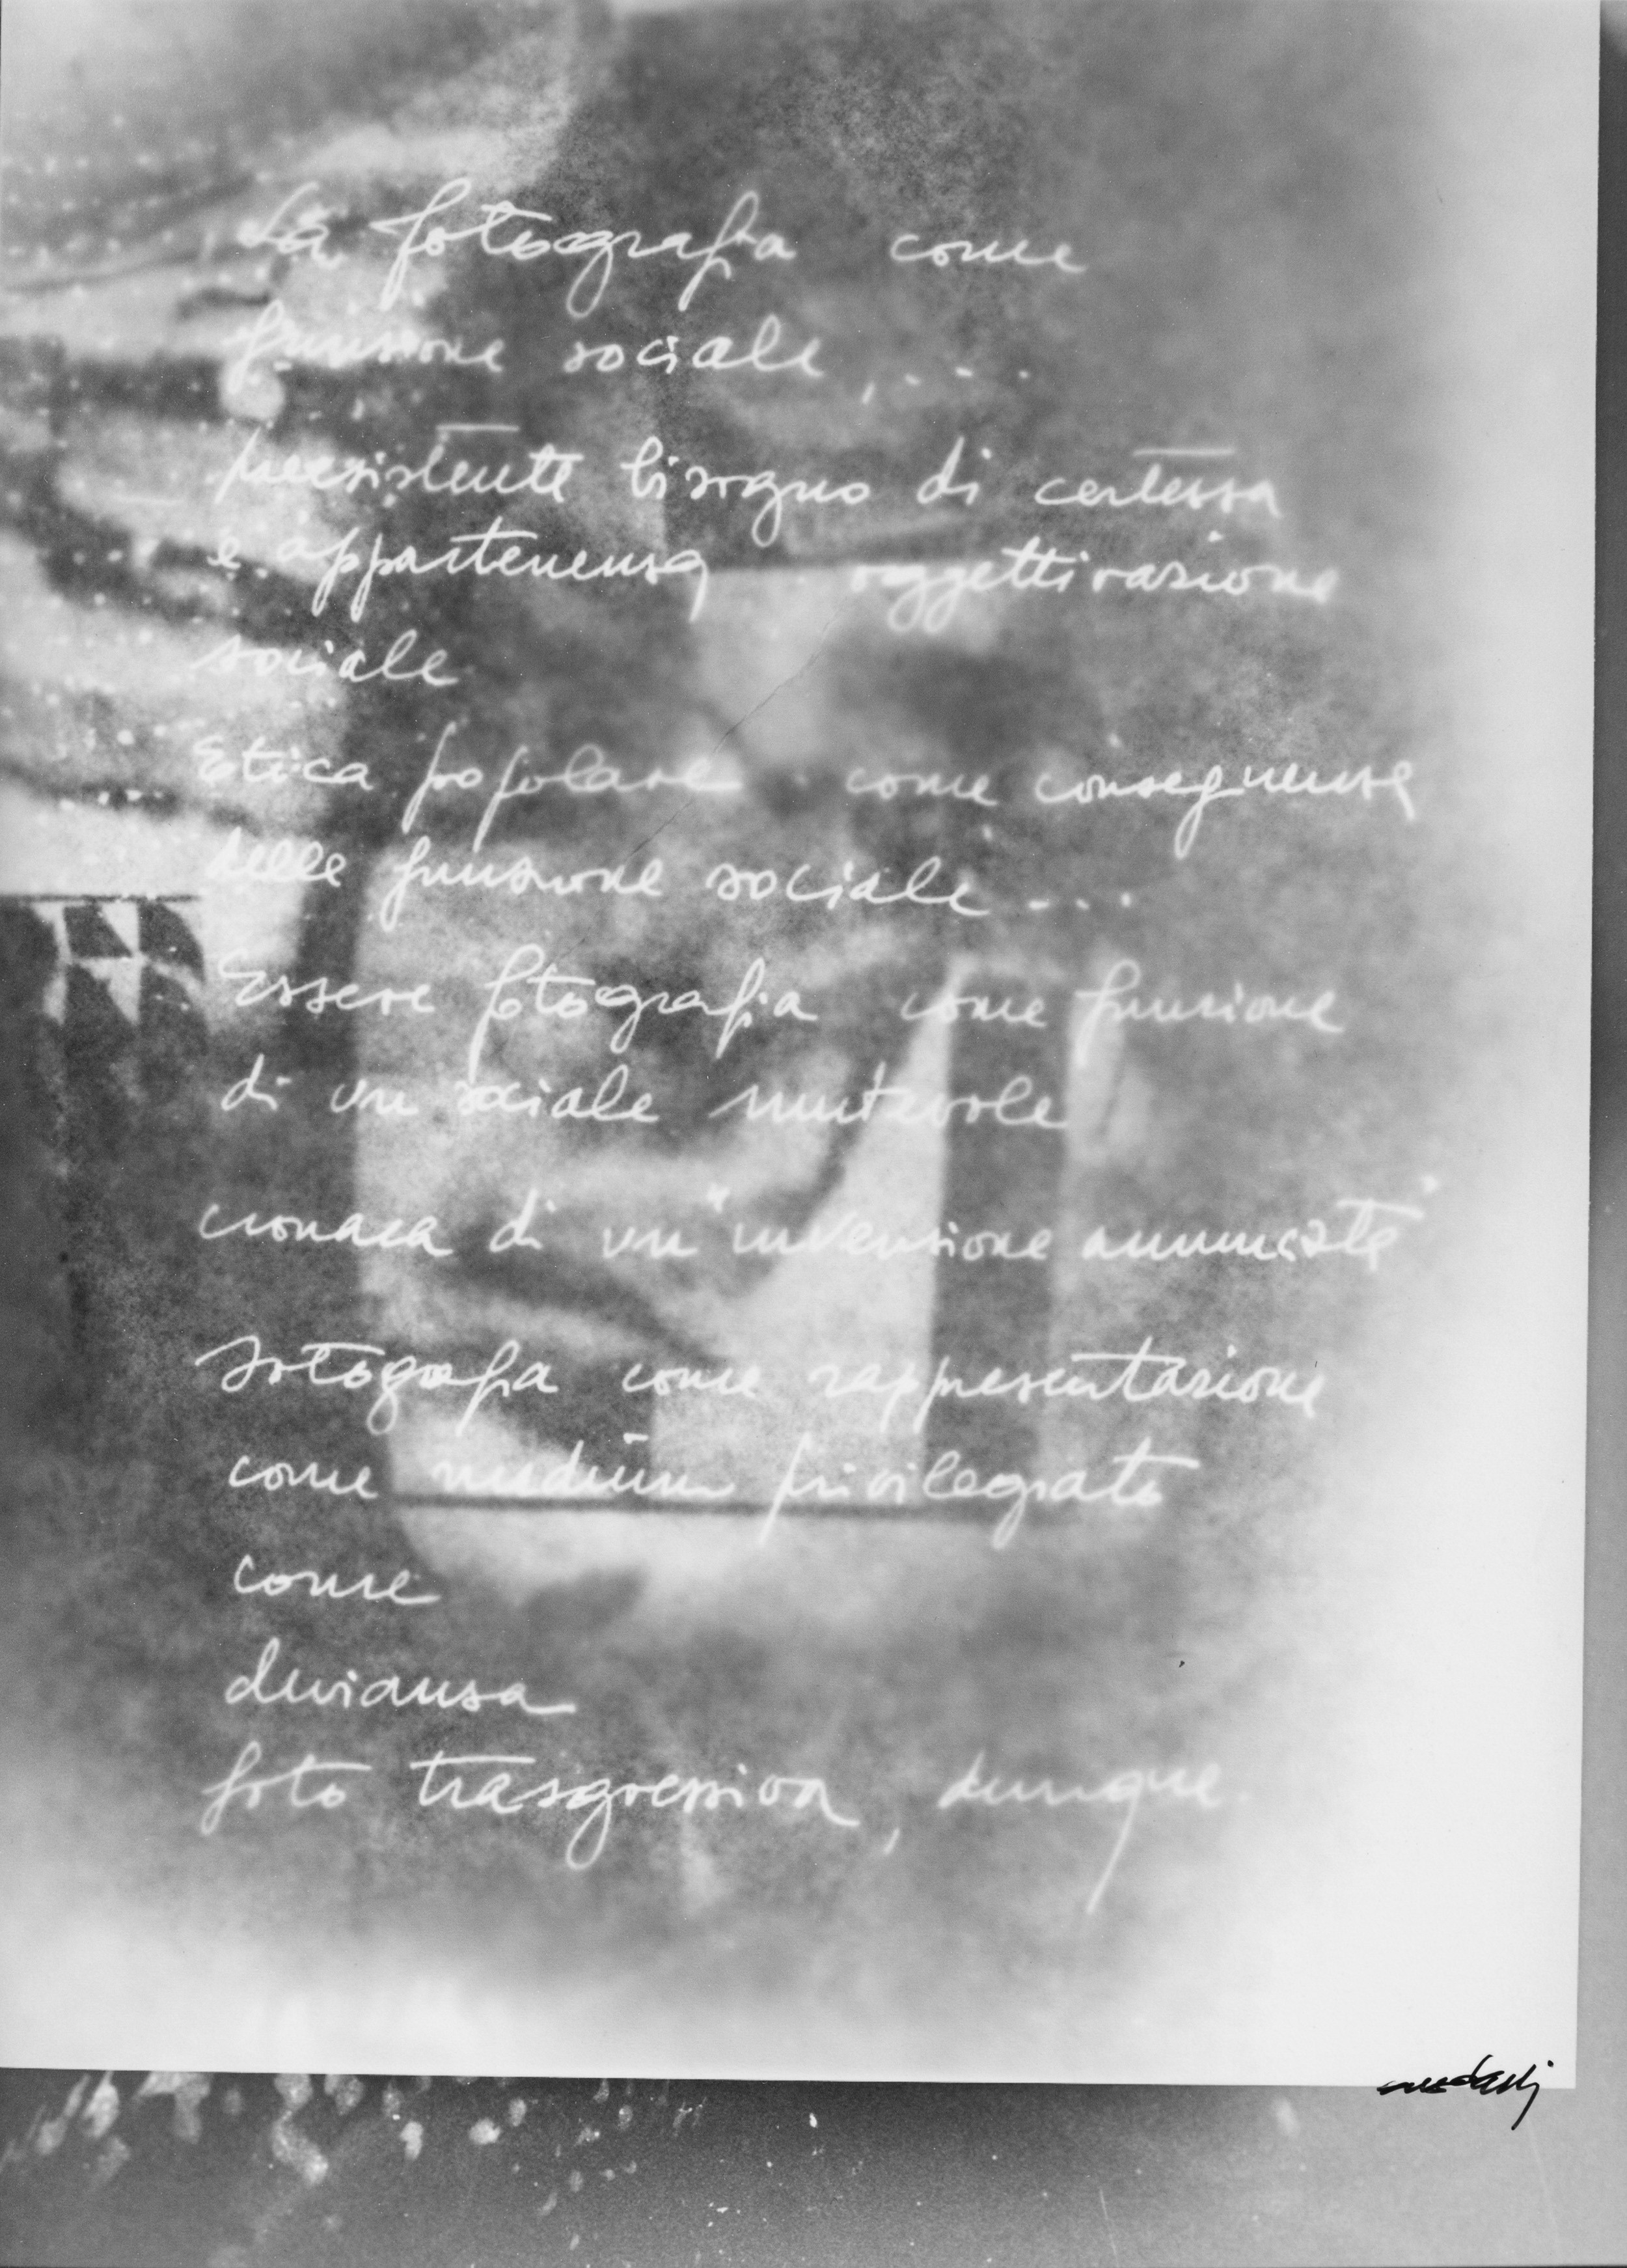 La fotografia come
funzione sociale, ....
preesistente bisogno di certezza
e appartenenza oggettivazione
sociale
Etica popolare come conseguenza
della funzione sociale ....
Essere fotografia come funzione
di un sociale mutevole
cronaca di un "invenzione annunciata"
Fotografia come rappresentazione
come medium privilegiato
come
devianza
foto trasgressiva, dunque.